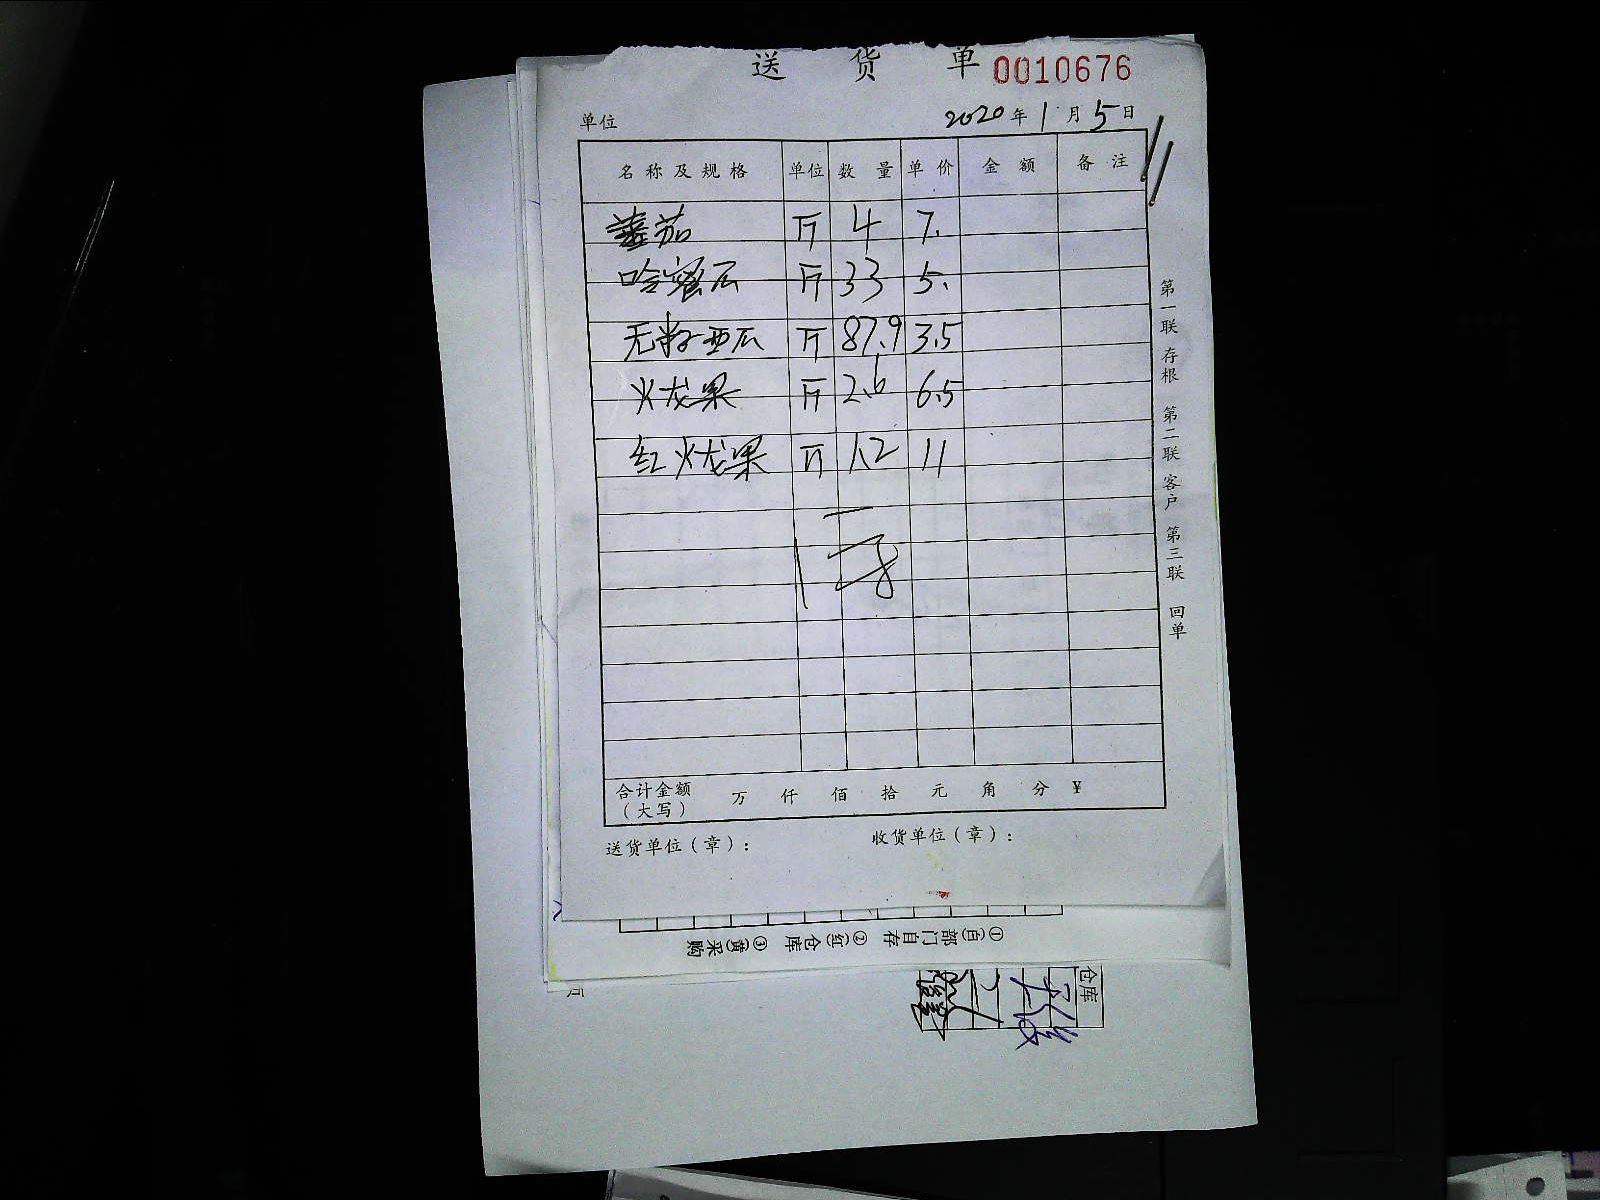 送 货 单 0010676
单位 2020 年 1 月 5 日
名称及规格 单位 数量 单价 金额 备注
蕃茄 斤 4 7.
哈蜜瓜 斤 33 5.
无籽西瓜 斤 87.9 3.5
火龙果 斤 2.6 6.5
红火龙果 斤 12 11
合计金额(大写) 万 仟 佰 拾 元 角 分 ¥
送货单位(章): 收货单位(章):
第一联 存根 第二联 客户 第三联 回单
①(白)部门自存 ②(红)仓库 ③(黄)采购
仓库